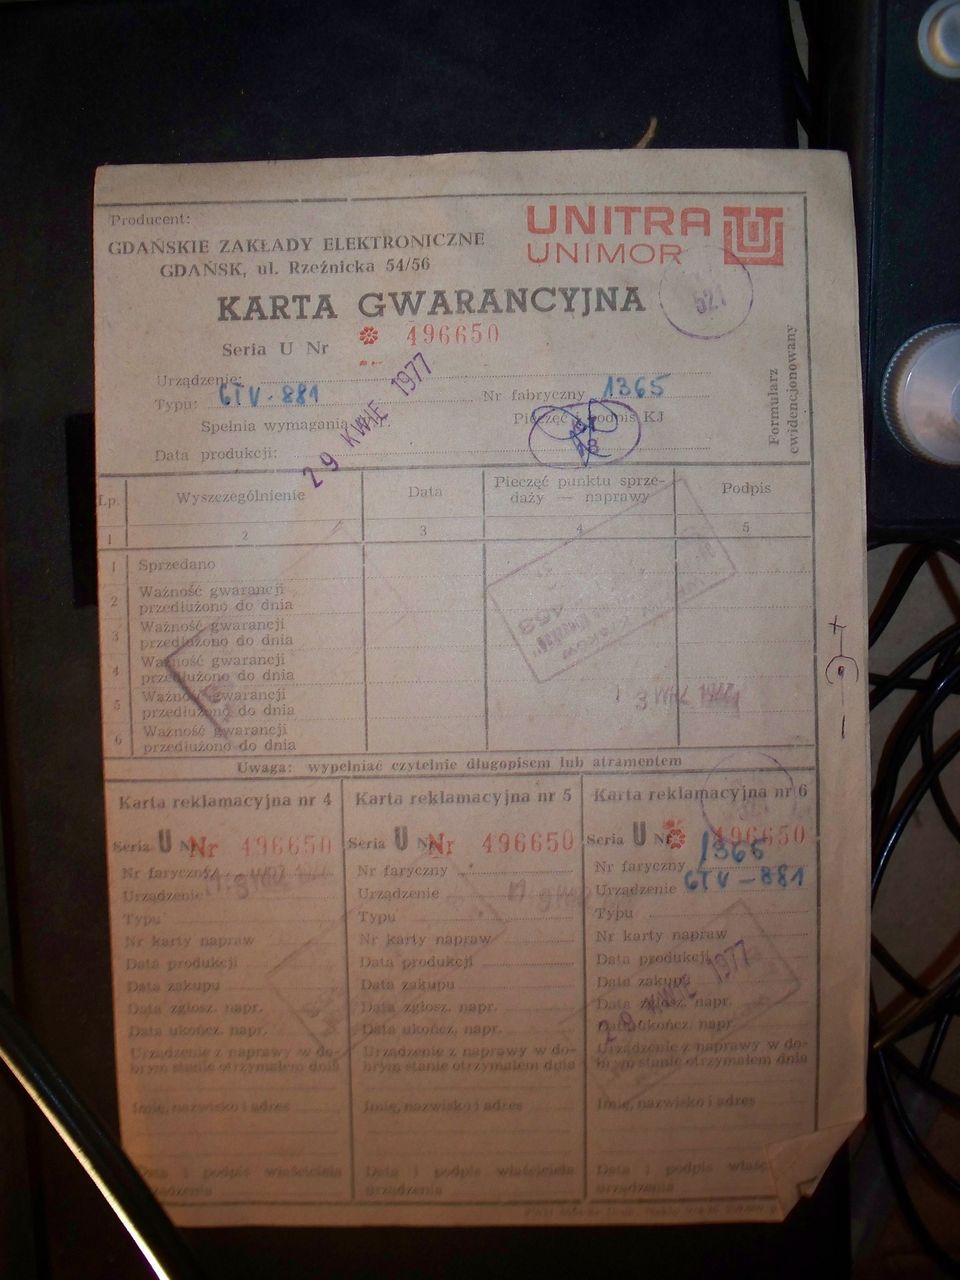 Producent:
GDAŃSKIE ZAKŁADY ELEKTRONICZNE
GDAŃSK, ul. Rzeźnicka 54/56
UNITRA
UNIMOR
KARTA GWARANCYJNA
521
Seria U Nr 496650
Formularz
ewidencjonowany
Urządzenie:
Typu: GTV-881 Nr fabryczny 1365
Spełnia wymagania Pieczęć i podpis KJ
Data produkcji: 29 KWIE 1977
Lp. Wyszczególnienie Data Pieczęć punktu sprze-
daży — naprawy Podpis
1 2 3 4 5
1 Sprzedano
2 Ważność gwarancji
przedłużono do dnia
3 Ważność gwarancji
przedłużono do dnia
4 Ważność gwarancji
przedłużono do dnia
5 Ważność gwarancji
przedłużono do dnia
6 Ważność gwarancji
przedłużono do dnia
Uwaga: wypełniać czytelnie długopisem lub atramentem
Karta reklamacyjna nr 4
Seria U Nr 496650
Nr faryczny
Urządzenie
Typu
Nr karty napraw
Data produkcji
Data zakupu
Data zgłosz. napr.
Data ukończ. napr.
Urządzenie z naprawy w do-
brym stanie otrzymałem dnia
Imię, nazwisko i adres
Data i podpis właściciela
urządzenia
Karta reklamacyjna nr 5
Seria U Nr 496650
Nr faryczny
Urządzenie
Typu
Nr karty napraw
Data produkcji
Data zakupu
Data zgłosz. napr.
Data ukończ. napr.
Urządzenie z naprawy w do-
brym stanie otrzymałem dnia
Imię, nazwisko i adres
Data i podpis właściciela
urządzenia
Karta reklamacyjna nr 6
Seria U Nr 496650
Nr faryczny 1365
Urządzenie GTV-881
Typu
Nr karty napraw
Data produkcji
Data zakupu
Data zgłosz. napr.
29 KWIE 1977
Data ukończ. napr.
Urządzenie z naprawy w do-
brym stanie otrzymałem dnia
Imię, nazwisko i adres
Data i podpis
urządzenia